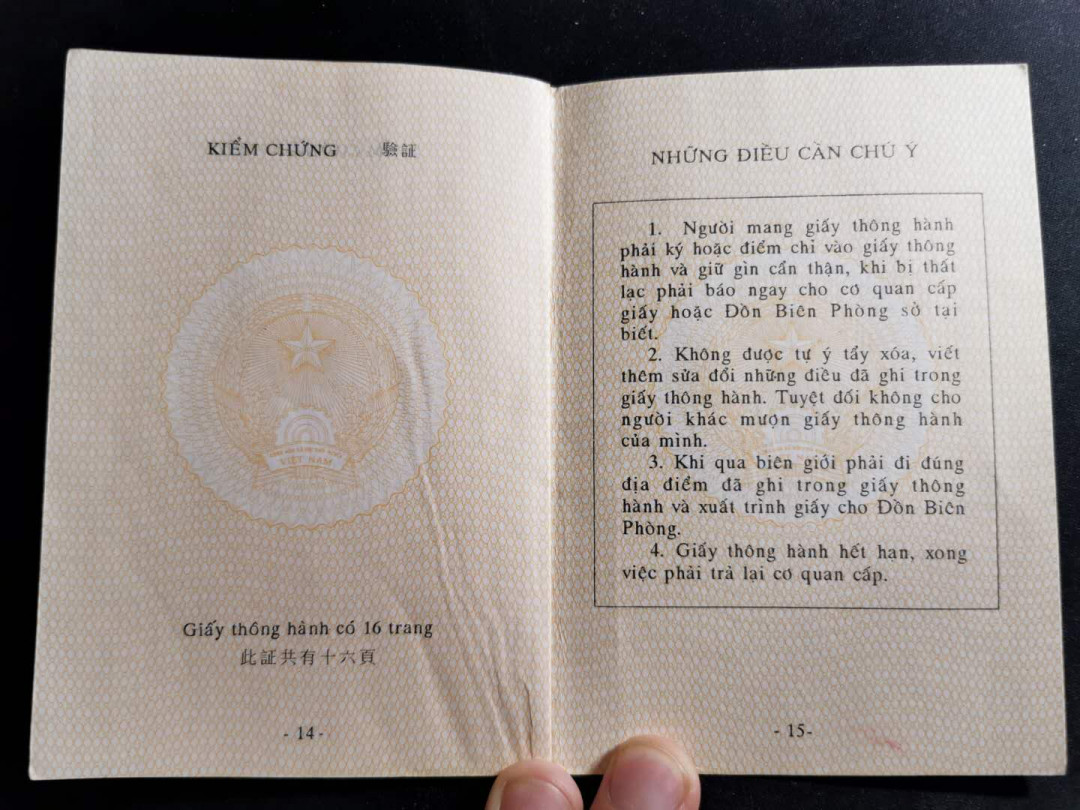 KIỂM CHỨNG 驗証
VIỆT NAM
Giấy thông hành có 16 trang
此証共有十六頁
- 14 -
NHỮNG ĐIỀU CẦN CHÚ Ý
1. Người mang giấy thông hành
phải ký hoặc điểm chỉ vào giấy thông
hành và giữ gìn cẩn thận, khi bị thất
lạc phải báo ngay cho cơ quan cấp
giấy hoặc Đồn Biên Phòng sở tại
biết.
2. Không được tự ý tẩy xóa, viết
thêm sửa đổi những điều đã ghi trong
giấy thông hành. Tuyệt đối không cho
người khác mượn giấy thông hành
của mình.
3. Khi qua biên giới phải đi đúng
địa điểm đã ghi trong giấy thông
hành và xuất trình giấy cho Đồn Biên
Phòng.
4. Giấy thông hành hết hạn, xong
việc phải trả lại cơ quan cấp.
- 15-